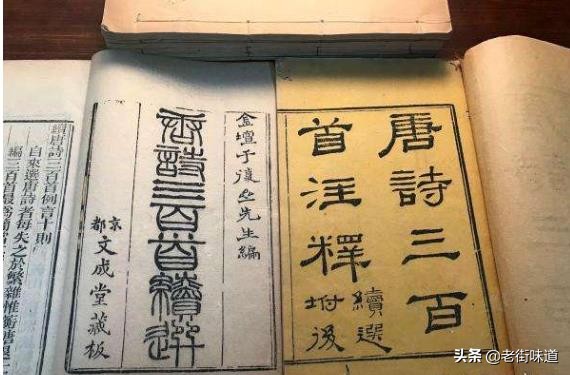 唐詩三百
首注釋
續選
坿後
金壇于復㞢先生編
唐詩三百首續選
京都
文成堂藏板
續唐詩三百首例言十則
自來選唐詩者每失之於繁雜惟蘅塘退
編三百首最為簡
头条 @老街味道